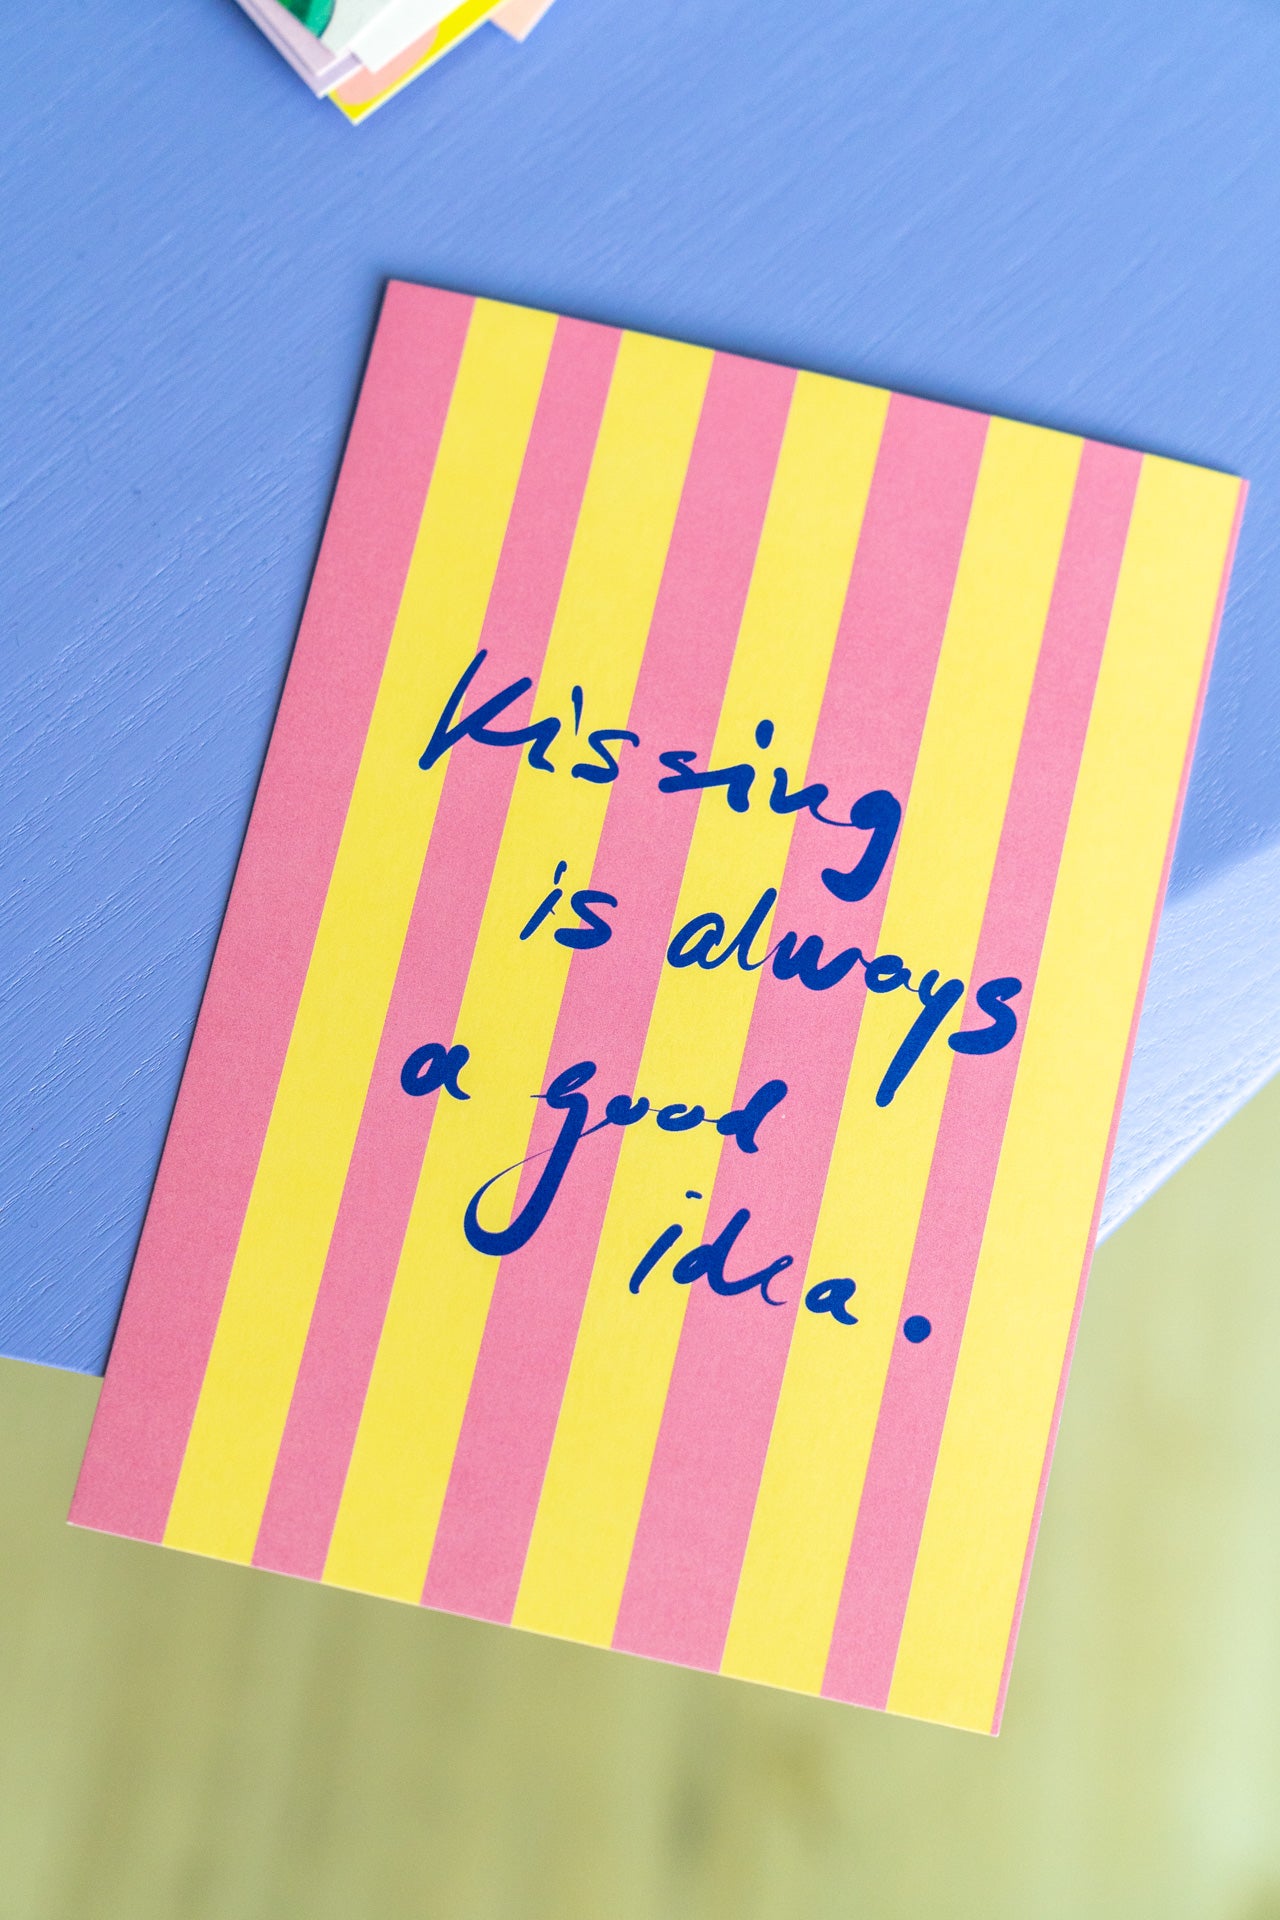 Kissing
is always
a good
idea.